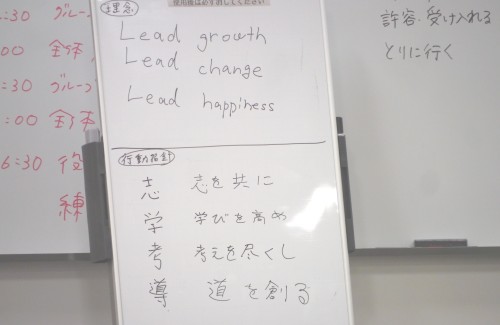 使用後は必ず消してください
理念
Lead growth
Lead change
Lead happiness
行動指針
志 志を共に
学 学びを高め
考 考えを尽くし
導 道を創る
:30 グルー
:00 全体
:30 グルー
:00 全体
6:30 役
練
許容・受け入れる
とりに行く